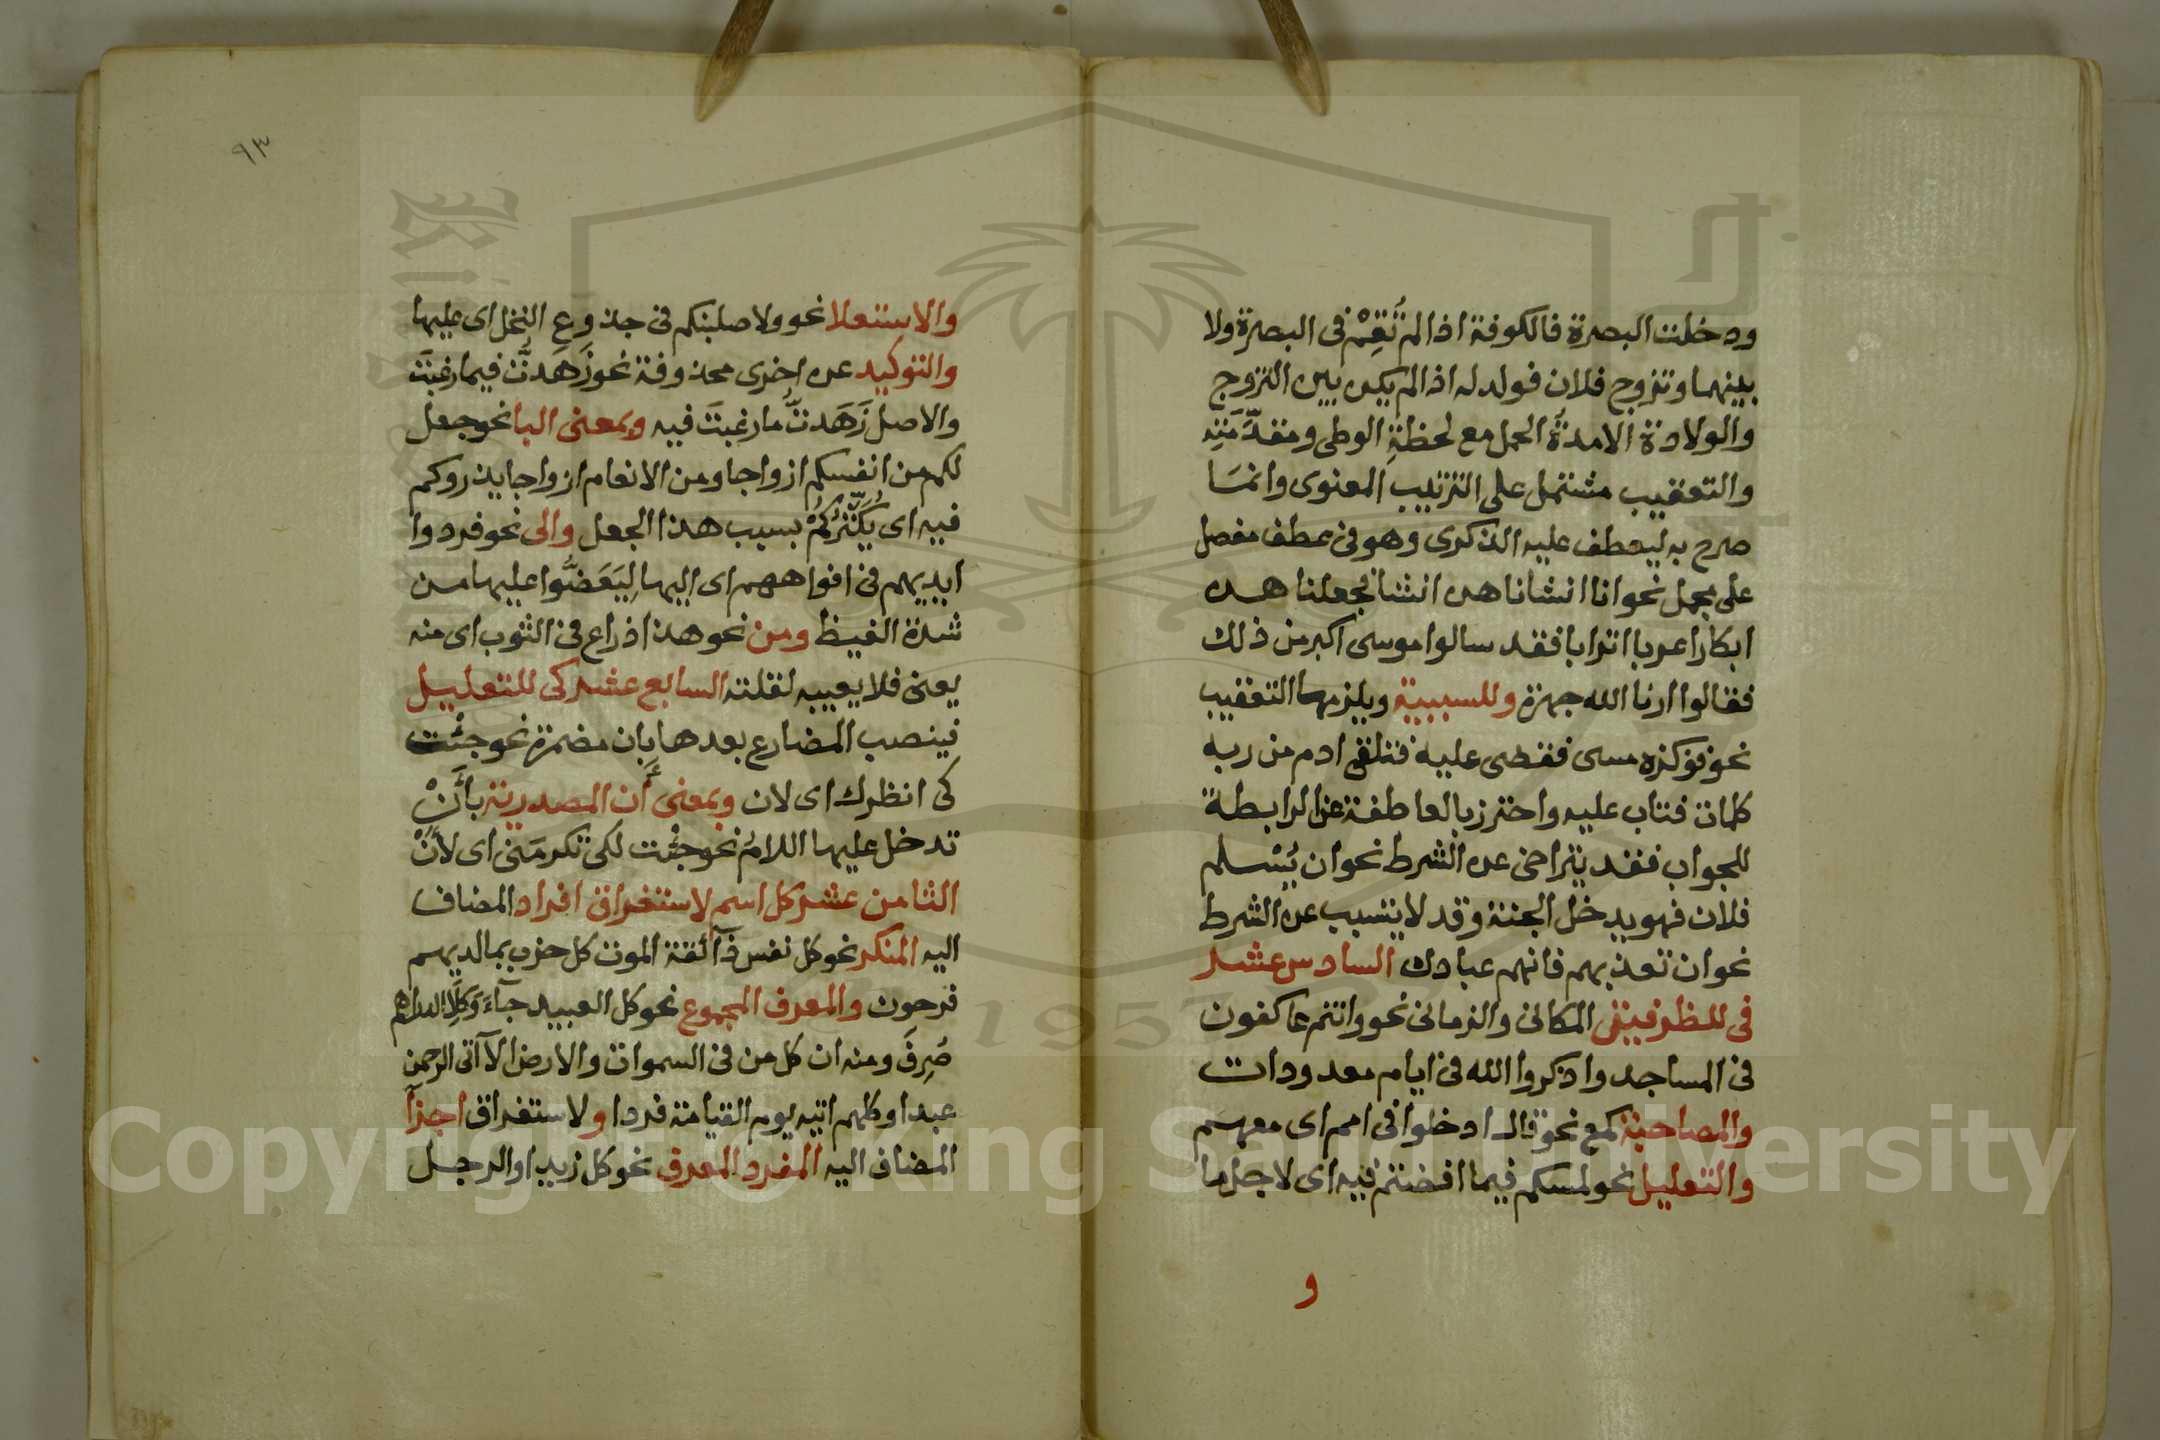 ودخلت البصرة فالكوفة اذا لم تُقِمْ فى البصرة ولا
بينهما وتزوج فلان فولد له اذا لم يكن بين التزوج
والولادة الا مدةُ الحمل مع لحظةِ الوطى ومقدّمَتِه
والتعقيب مشتمل على الترتيب المعنوى وانما
صرح به ليعطف عليه الذكرى وهو فى عطف مفصل
على مجمل نحو انا انشاناهن انشا فجعلناهن
ابكارا عربا اترابا فقد سالوا موسى اكبر من ذلك
فقالوا ارنا الله جهرة وللسببية ويلزمها التعقيب
نحو فوكزه موسى فقضى عليه فتلقى ادم من ربه
كلمات فتاب عليه واحترز بالعاطفة عن الرابطة
للجواب فقد يتراخى عن الشرط نحو ان يُسْلم
فلان فهو يدخل الجنة وقد لا يتسبب عن الشرط
نحو ان تعذبهم فانهم عبادك السادس عشر
فى للظرفيتين المكانى والزمانى نحو وانتم عاكفون
فى المساجد واذكروا الله فى ايام معدودات
والمصاحبة كمع نحو قال ادخلوا فى امم اى معهم
والتعليل نحو لمسكم فيما افضتم فيه اى لاجل ما
و
٩٣
والاستعلا نحو ولاصلبنكم فى جذوعِ النخل اى عليها
والتوكيد عن اخرى محذوفة نحو زَهَدتُّ فيما رغبتَ
والاصل زَهَدتُّ ما رغبتَ فيه وبمعنى البا نحو جعل
لكم من انفسكم ازواجا ومن الانعام ازواجا يذروكم
فيه اى يُكَثِّرُكُمْ بسبب هذا الجعل والى نحو فردوا
ايديهم فى افواههم اى اليها لِيَعَضُّوا عليها من
شدة الغيظ ومن نحو هذا ذراع فى الثوب اى منه
يعنى فلا يعيبه لقلته السابع عشر كى للتعليل
فينصب المضارع بعدها بِان مضمرة نحو جئْت
كى انظرك اى لان وبمعنى أن المصدرية بأَنْ
تدخل عليها اللامُ نحو جئْت لكى تكرمَنى اى لأَنْ
الثامن عشر كل اسم لاستغراق افراد المضاف
اليه المنكر نحو كل نفس ذآئقة الموت كل حزب بما لديهم
فرحون والمعرف المجموع نحو كل العبيد جآءَ وَكلِّ الدراهم
صُرِفَ ومنه ان كل من فى السموات والارض الا آتى الرحمن
عبدا وكلهم اتيه يوم القيامة فردا ولاستغراق اجزآ
المضاف اليه المفرد المعرف نحو كل زيد او الرجل
Copyright © King Saud University
1957